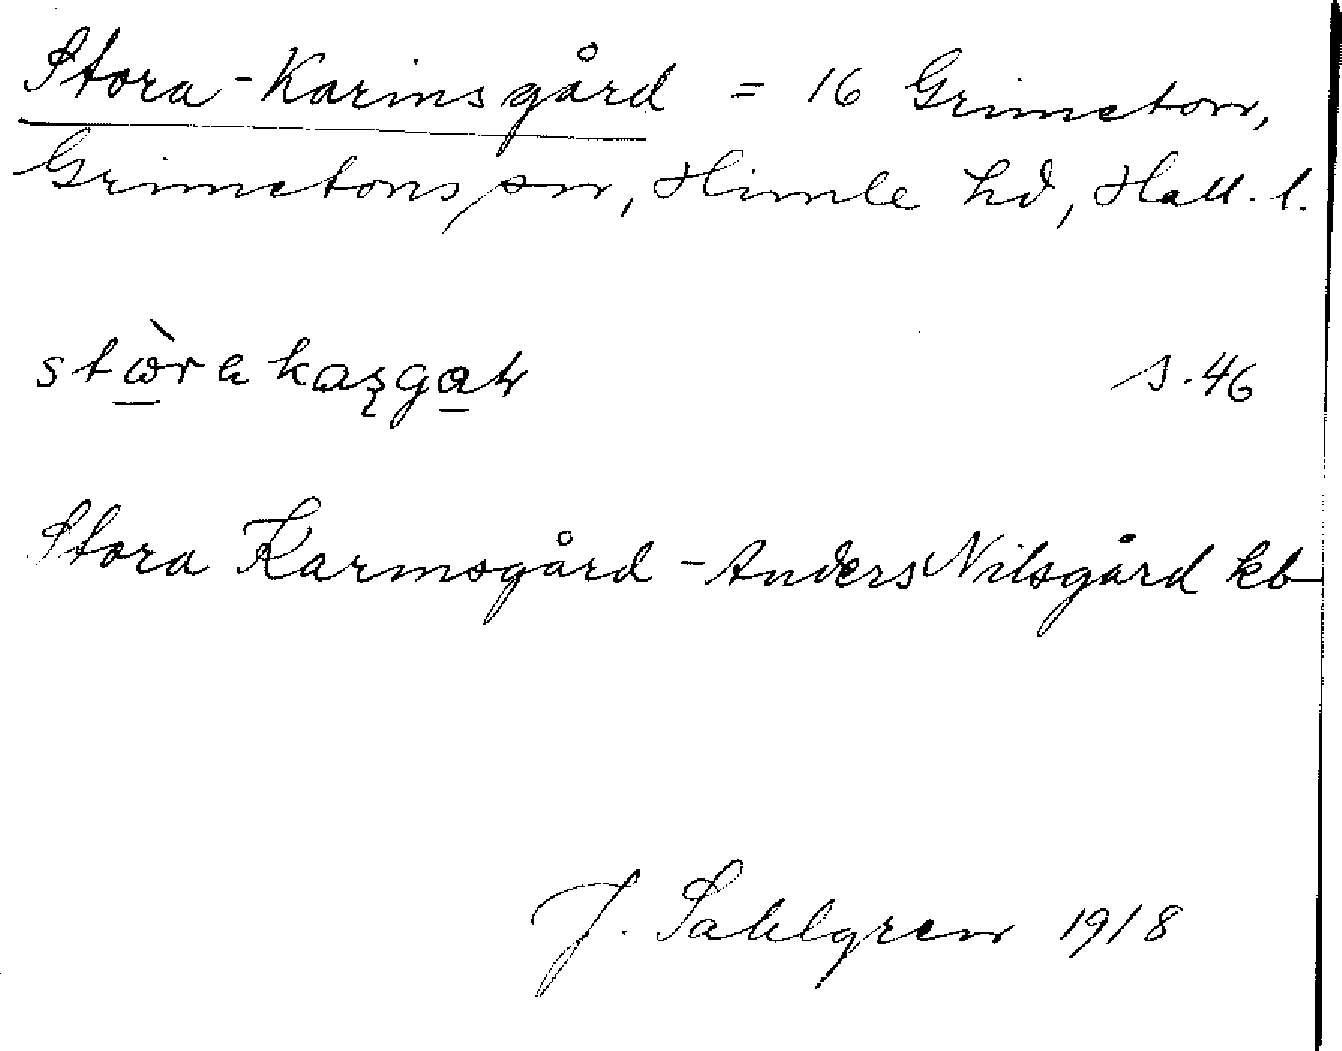 Stora-Karinsgård = 16 Grimeton,
Grimetons sn, Himle hd, Hall. l.
s. 46
Stora Karinsgård - Anders Nilsgård kb
J. Sahlgren 1918